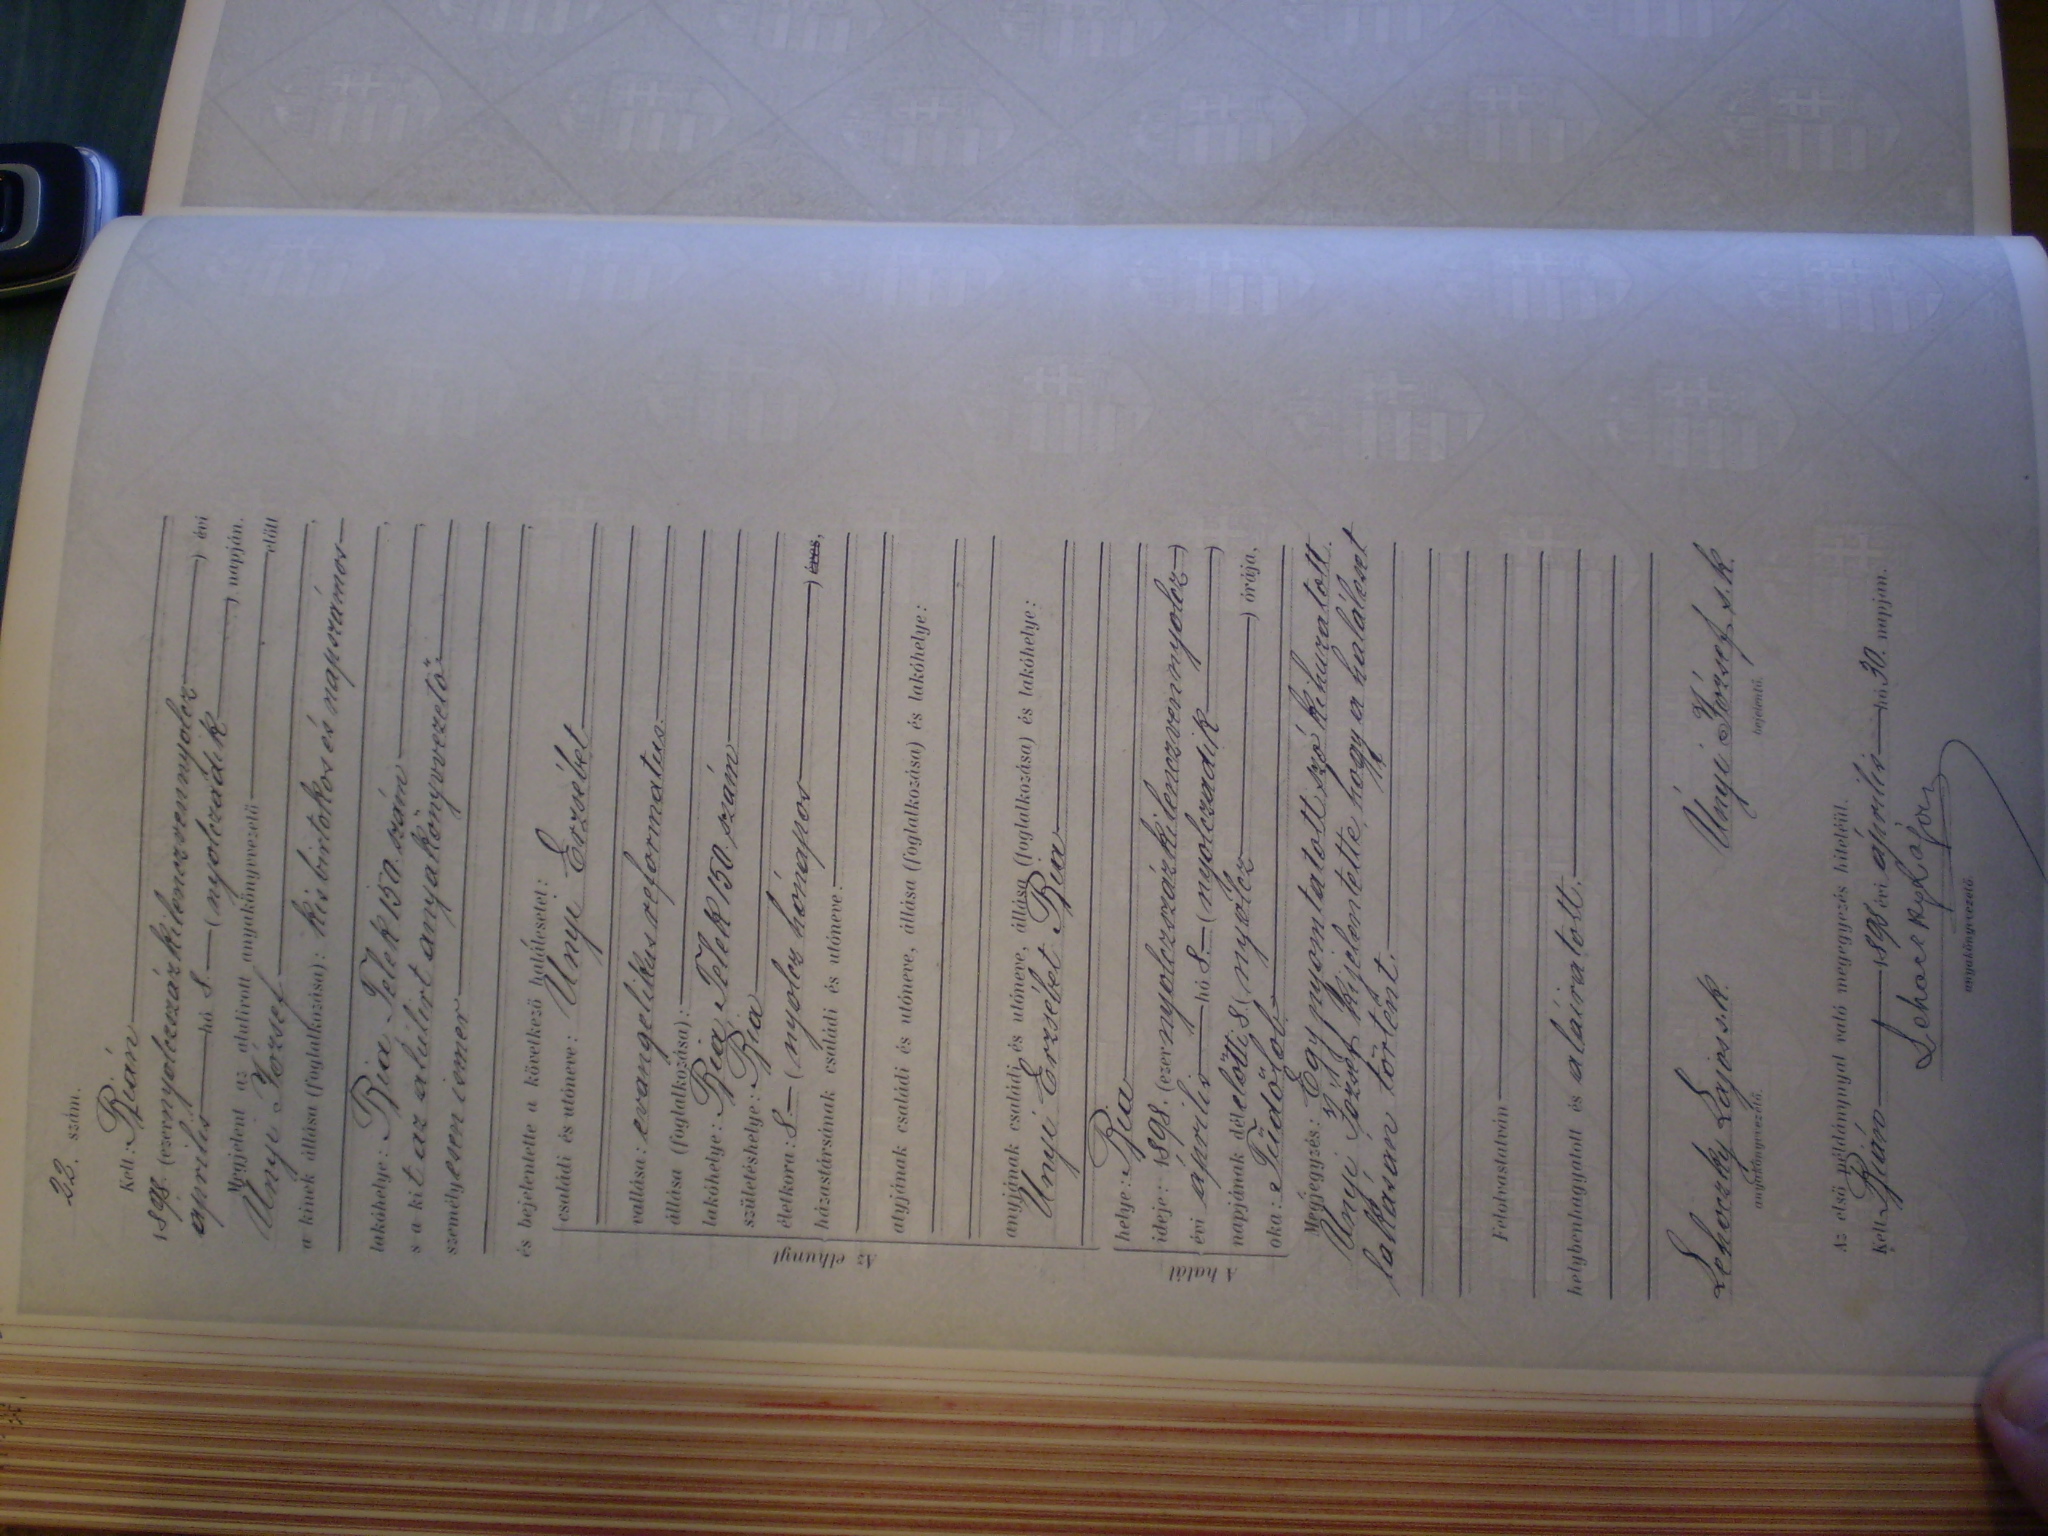 22. szám.
Kelt: Bián
1898. (ezernyolczszázkilenczvennyolcz) évi
április hó 8. (nyolczadik) napján.
Megjelent az alulirott anyakönyvvezető előtt
Únyi József,
a kinek állása (foglalkozása): kisbirtokos és napszámos
lakóhelye: Bia Telek 150. szám,
s a kit az alulirt anyakönyvvezető
személyesen ismer
és bejelentette a következő halálesetet:
Az elhunyt
családi és utóneve: Únyi Erzsébet
vallása: evangélikus reformatus.
állása (foglalkozása):
lakóhelye: Bia, Telek 150. szám
születéshelye: Bia
életkora: 8. (nyolcz hónapos) éves,
házastársának családi és utóneve:
atyjának családi és utóneve, állása (foglalkozása) és lakóhelye:
anyjának családi és utóneve, állása (foglalkozása) és lakóhelye:
Únyi Erzsébet Bia
A halál
helye: Bia
ideje: 1898. (ezernyolczszázkilenczvennyolcz)
évi április hó 8. (nyolczadik)
napjának délelőtti 8. (nyolcz) órája,
oka: Tüdőlob.
Megjegyzés: Egy nyomtatott szó kihuzatott.
Únyi József kijelentette hogy a haláleset
lakásán történt.
Felolvastatván
helybenhagyatott és aláiratott.
Lehoczky Lajos s.k. Únyi József s.k.
anyakönyvvezető. bejelentő.
Az első példánynyal való megegyezés hiteléül.
Kelt Bián 1898 évi április hó 30. napján.
Lehoczky Lajos
anyakönyvvezető.